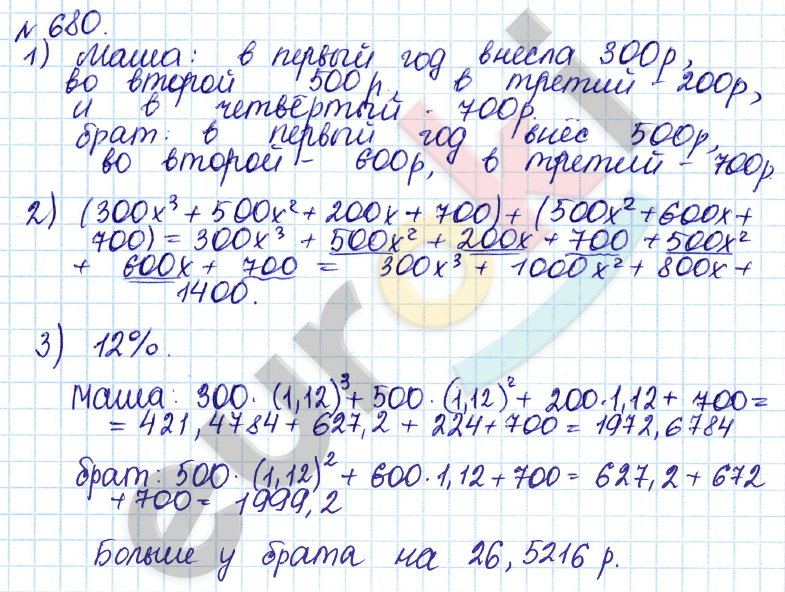 № 680.
1) Маша: в первый год внесла 300р,
во второй 500р, в третий - 200р,
и в четвёртый - 700р.
брат: в первый год внёс 500р,
во второй - 600р, в третий - 700р.
2) (300x³ + 500x² + 200x + 700) + (500x² + 600x +
700) = 300x³ + 500x² + 200x + 700 + 500x²
+ 600x + 700 = 300x³ + 1000x² + 800x +
1400.
3) 12%.
Маша: 300 · (1,12)³ + 500 · (1,12)² + 200 · 1,12 + 700 =
= 421,4784 + 627,2 + 224 + 700 = 1972,6784
брат: 500 · (1,12)² + 600 · 1,12 + 700 = 627,2 + 672
+ 700 = 1999,2
Больше у брата на 26,5216 р.
euroki